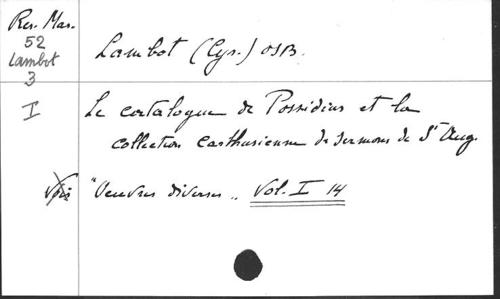 Rev. Mar.
52
Lambot
3
I
Lambot (Cyr.) OSB.
Le catalogue de Possidius et la
collection carthusienne de sermons de St Aug.
Voir "Oeuvres diverses" Vol. I 14